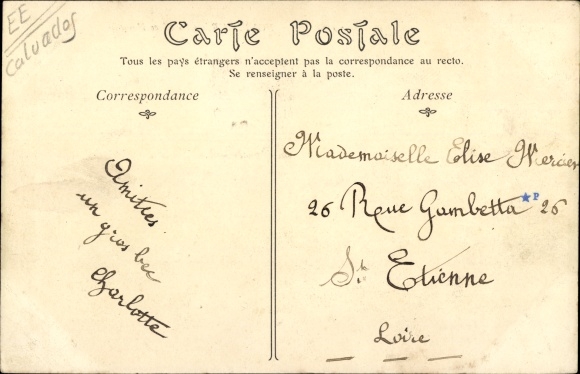 EE
Calvados
Carte Postale
Tous les pays étrangers n'acceptent pas la correspondance au recto.
Se renseigner à la poste.
Correspondance
Amitiés
un gros bec
Charlotte
Adresse
Mademoiselle Elise Mercier
26 Rue Gambetta 26
★P
St Etienne
Loire